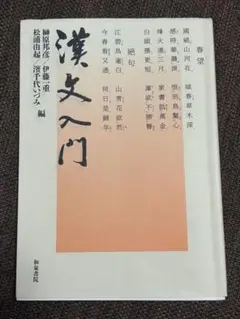 春望
國破山河在 城春草木深
感時花濺淚 恨別鳥驚心
烽火連三月 家書抵萬金
白頭搔更短 渾欲不勝簪
絶句
江碧鳥逾白 山青花欲然
今春看又過 何日是歸年
漢文入門
榊原邦彦/伊藤一重
松浦由起/濱千代いづみ 編
和泉書院